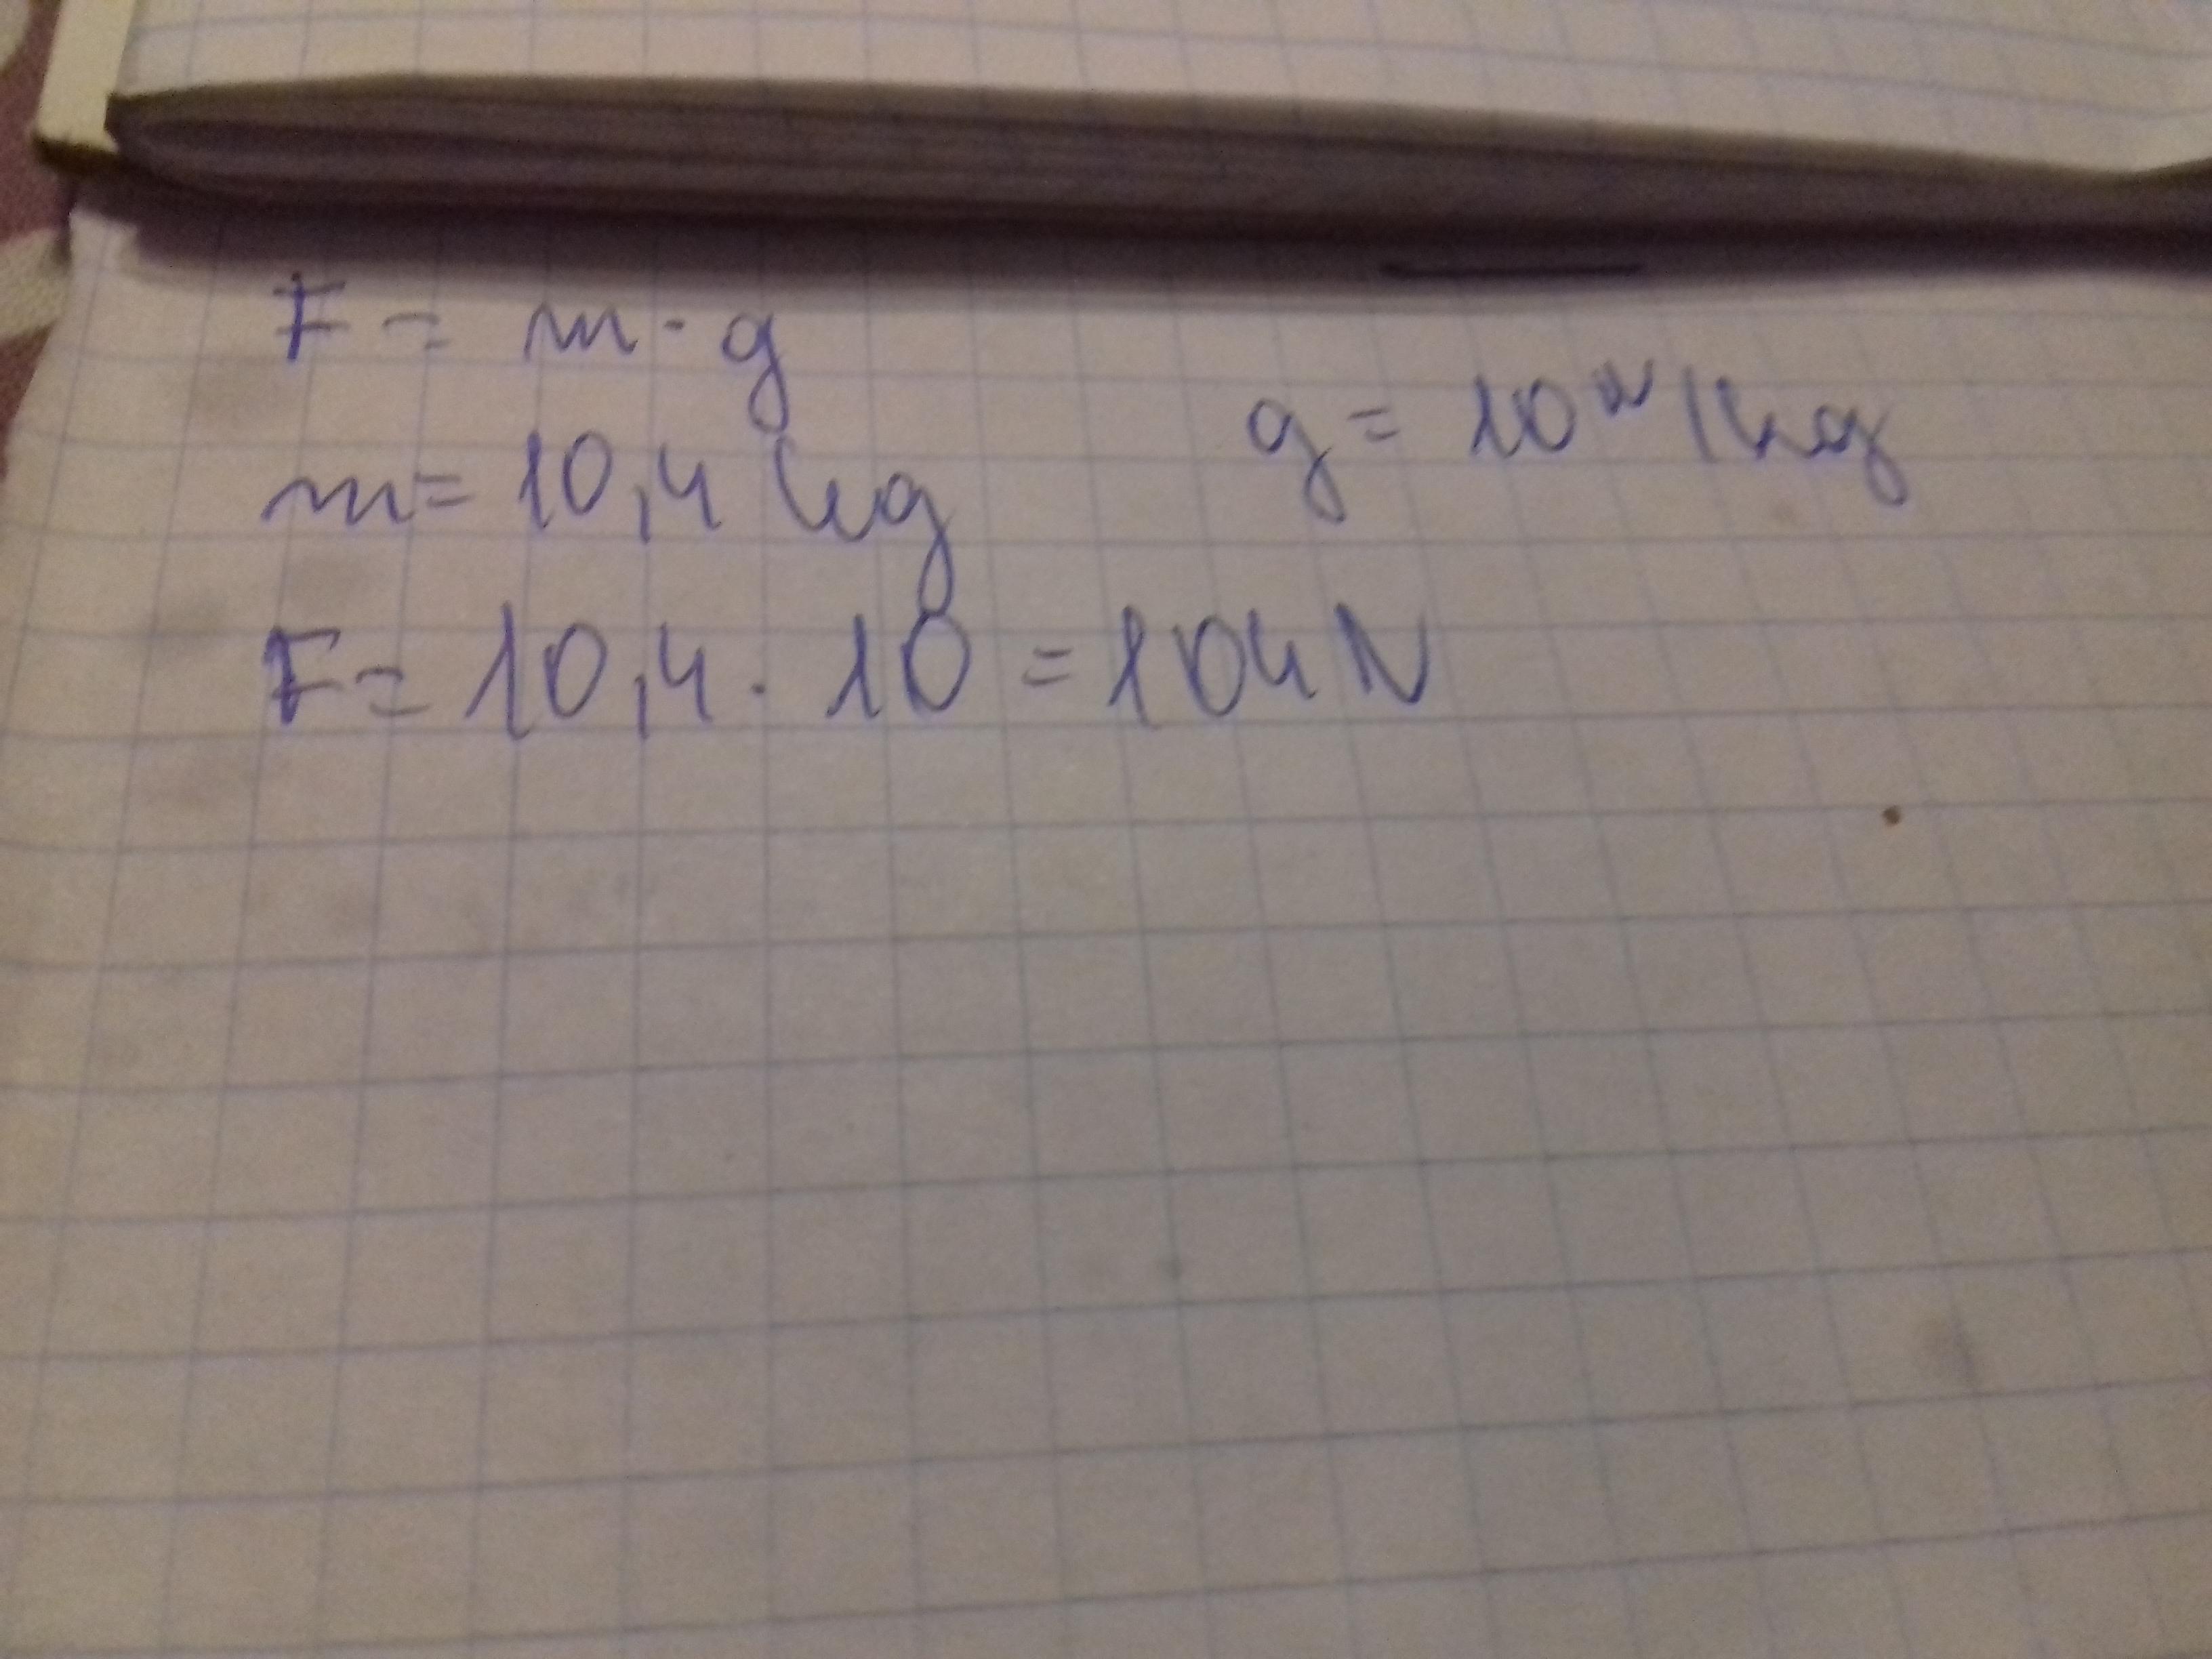 F = m · g
g = 10 N/kg
m = 10,4 kg
F = 10,4 · 10 = 104 N